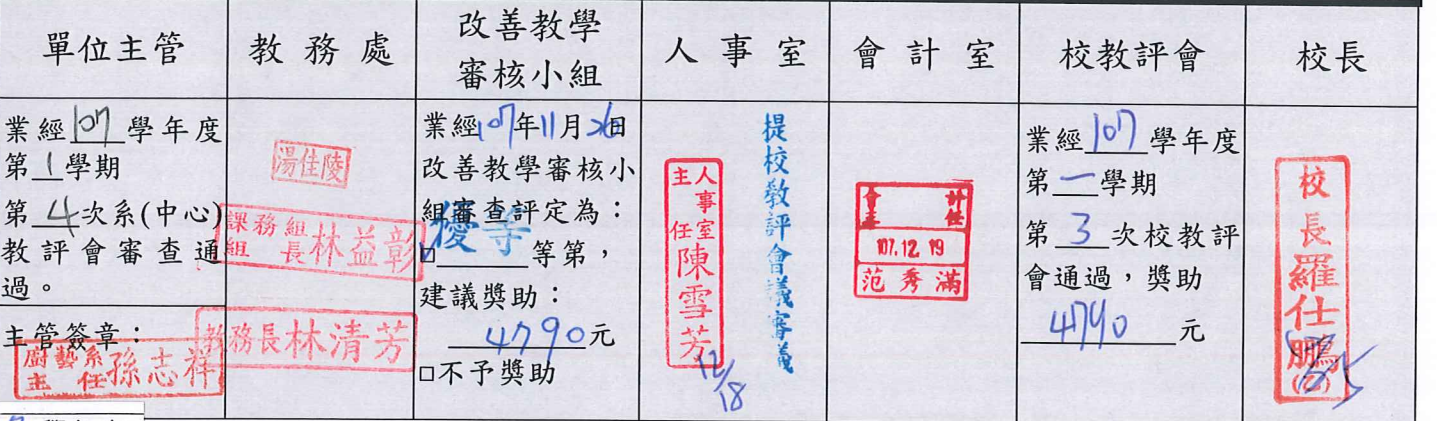 單位主管
教務處
改善教學
審核小組
人事室
會計室
校教評會
校長
業經107學年度
第1學期
第4次系(中心)
教評會審查通
過。
主管簽章：
廚藝系
主任孫志祥
湯佳陵
課務組
組長林益彰
教務長林清芳
業經107年11月26日
改善教學審核小
組審查評定為：
□優等等第，
建議獎助：
4790元
□不予獎助
提校教評會議審議
人事室
主任陳雪芳
12/18
會計
主任
107.12.19
范秀滿
業經107學年度
第一學期
第3次校教評
會通過，獎助
4790元
校長羅仕鵬